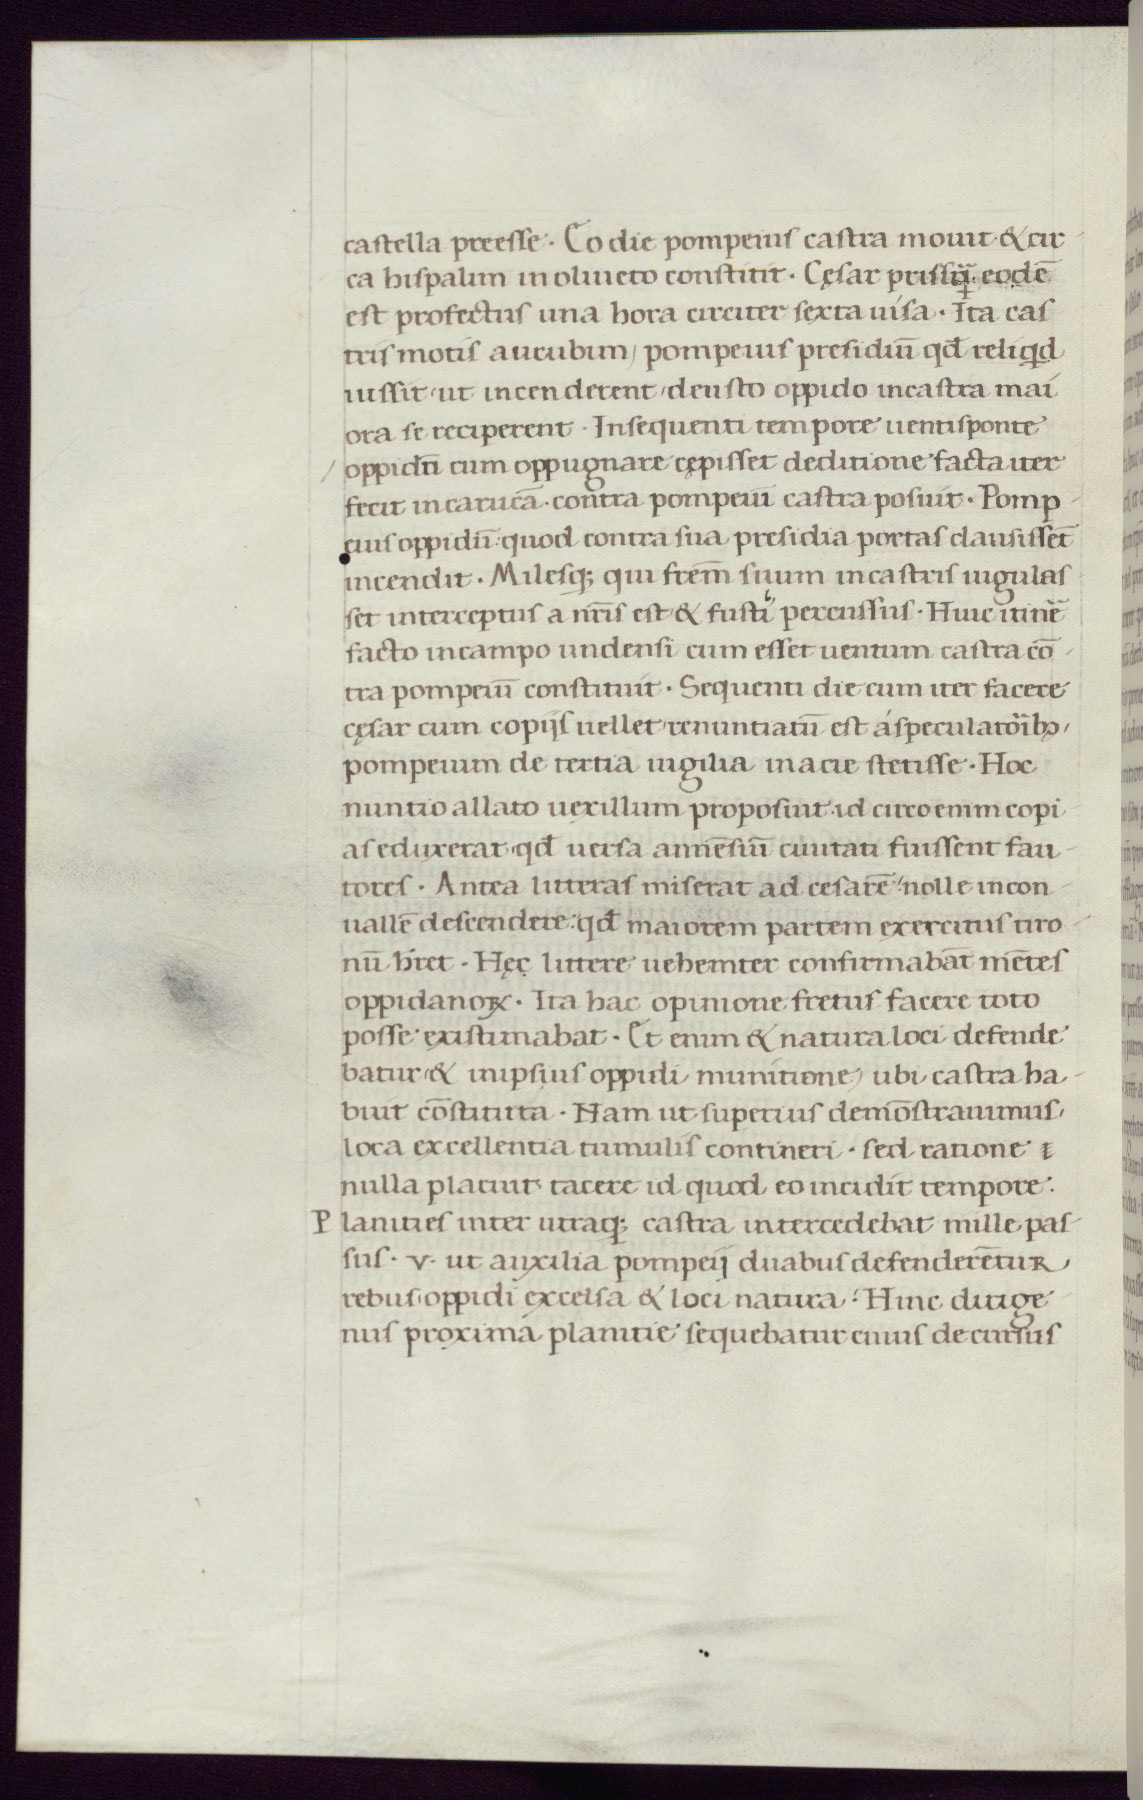 castella preesse · Eo die pompeius castra mouit · & cir
ca hispalim in oliueto constitit · Cęsar eodē
est profectus una hora circiter sexta uisa · Ita cas
tris motis aucubim / pompeius presidiū qđ reliqđ
iussit ut incenderent / deusto oppido in castra mai
ora se reciperent · Insequenti tempore uentisponte
oppidū cum oppugnare cępisset deditione facta iter
fecit in carucā · contra pompeiū castra posuit · Pomp
eius oppidū quod contra sua presidia portas clausissēt
incendit · Milesq; qui frēm suum in castris iugulas
set interceptus a nr̄is est & fusti percussus · Hinc itinē
facto in campo undensi cum esset uentum castra cō
tra pompeiū constituit · Sequenti die cum iter facere
cęsar cum copijs uellet renuntiatū est á speculatōibꝫ /
pompeium de tertia uigilia in acie stetisse · Hoc
nuntio allato uexillum proposuit id circo enim copi
as eduxerat qđ uersa aniēsiū ciuitati fuissent fau
tores · Antea litteras miserat ad cesarē nolle in con
uallē descendere : qđ maiorem partem exercitus tiro
nū hr̄et · Hęc littere uehemter confirmabāt mētes
oppidanoꝝ · Ita hac opinione fretus facere toto
posse existimabat · Et enim & natura loci defende
batur & in ipsius oppidi munitione / ubi castra ha
buit cōstituta · Nam ut superius demōstrauimus /
loca excellentia tumulis contineri · sed ratione
nulla placuit tacere id quod eo incidit tempore ·
P lanities inter utraq; castra intercedebat mille pas
sus · v · ut auxilia pompeij duabus defenderētur /
rebus oppidi excelsa & loci natura : Hinc dirige
nis proxima planitie sequebatur cuius decursus